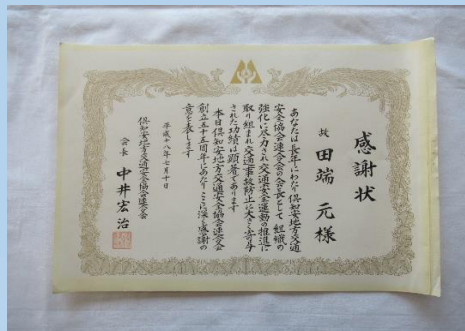 感謝状
故 田端 元様
あなたは長年にわたり倶知安地方交通
安全協会連合会の会長として組織の
強化に尽力され交通安全運動の推進に
取り組まれ交通事故防止に大きく寄与
された功績は顕著であります
本日倶知安地方交通安全協会連合会
創立五十五周年にあたりここに深く感謝の
意を表します
平成十八年七月十日
倶知安地方交通安全協会連合会
会長 中井宏治